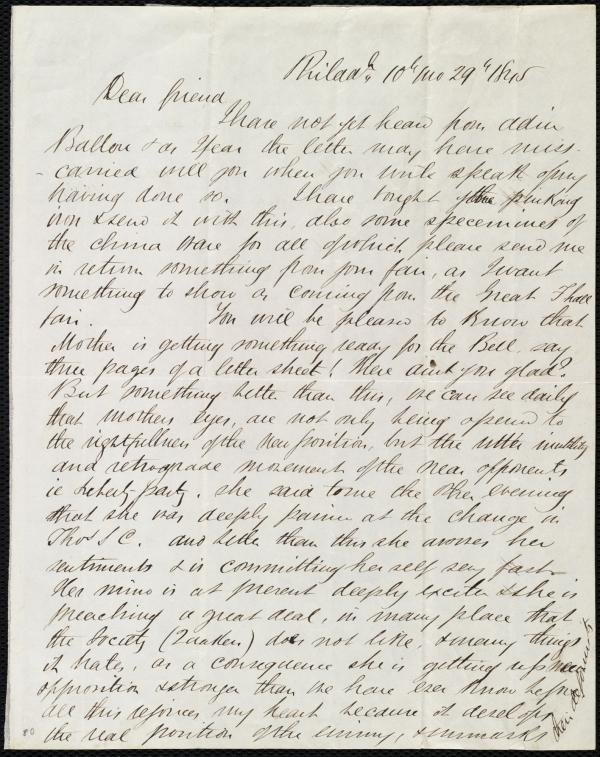 Philada. 10th mo 29th 1845
Dear friend
I have not yet heard from Adin
Ballou & as I fear the letter may have mis-
carried will you when you write speak of my
having done so. I have bought
iron & send it with this, also some specimines of
the china ware for all of which please send me
in return something from your fair, as I want
something to show as coming from the Great
fair. You will be pleased to know that
Mother is getting something ready for the Bell, say
three pages of a letter sheet! There aint you glad?
But something better than this, we can see daily
that mothers eyes, are not only being opened to
the rightfullness of the new position, but the utter inutility
and retrograde movement of the near opponents
ie Liberty party. She said to me the other evening
that she was deeply pained at the change in
Thos S C. and better than this she avows her
sentiments & is committing herself very fast
Her mind is at present deeply excited & she is
preaching a great deal, in many place that
the Society (Quaker) does not like, & many things
it hates, as a consequence she is getting up new
opposition & stronger than we have ever know before
all this rejoices my heart because it develops
the real position of the enimy, & unmasks
80